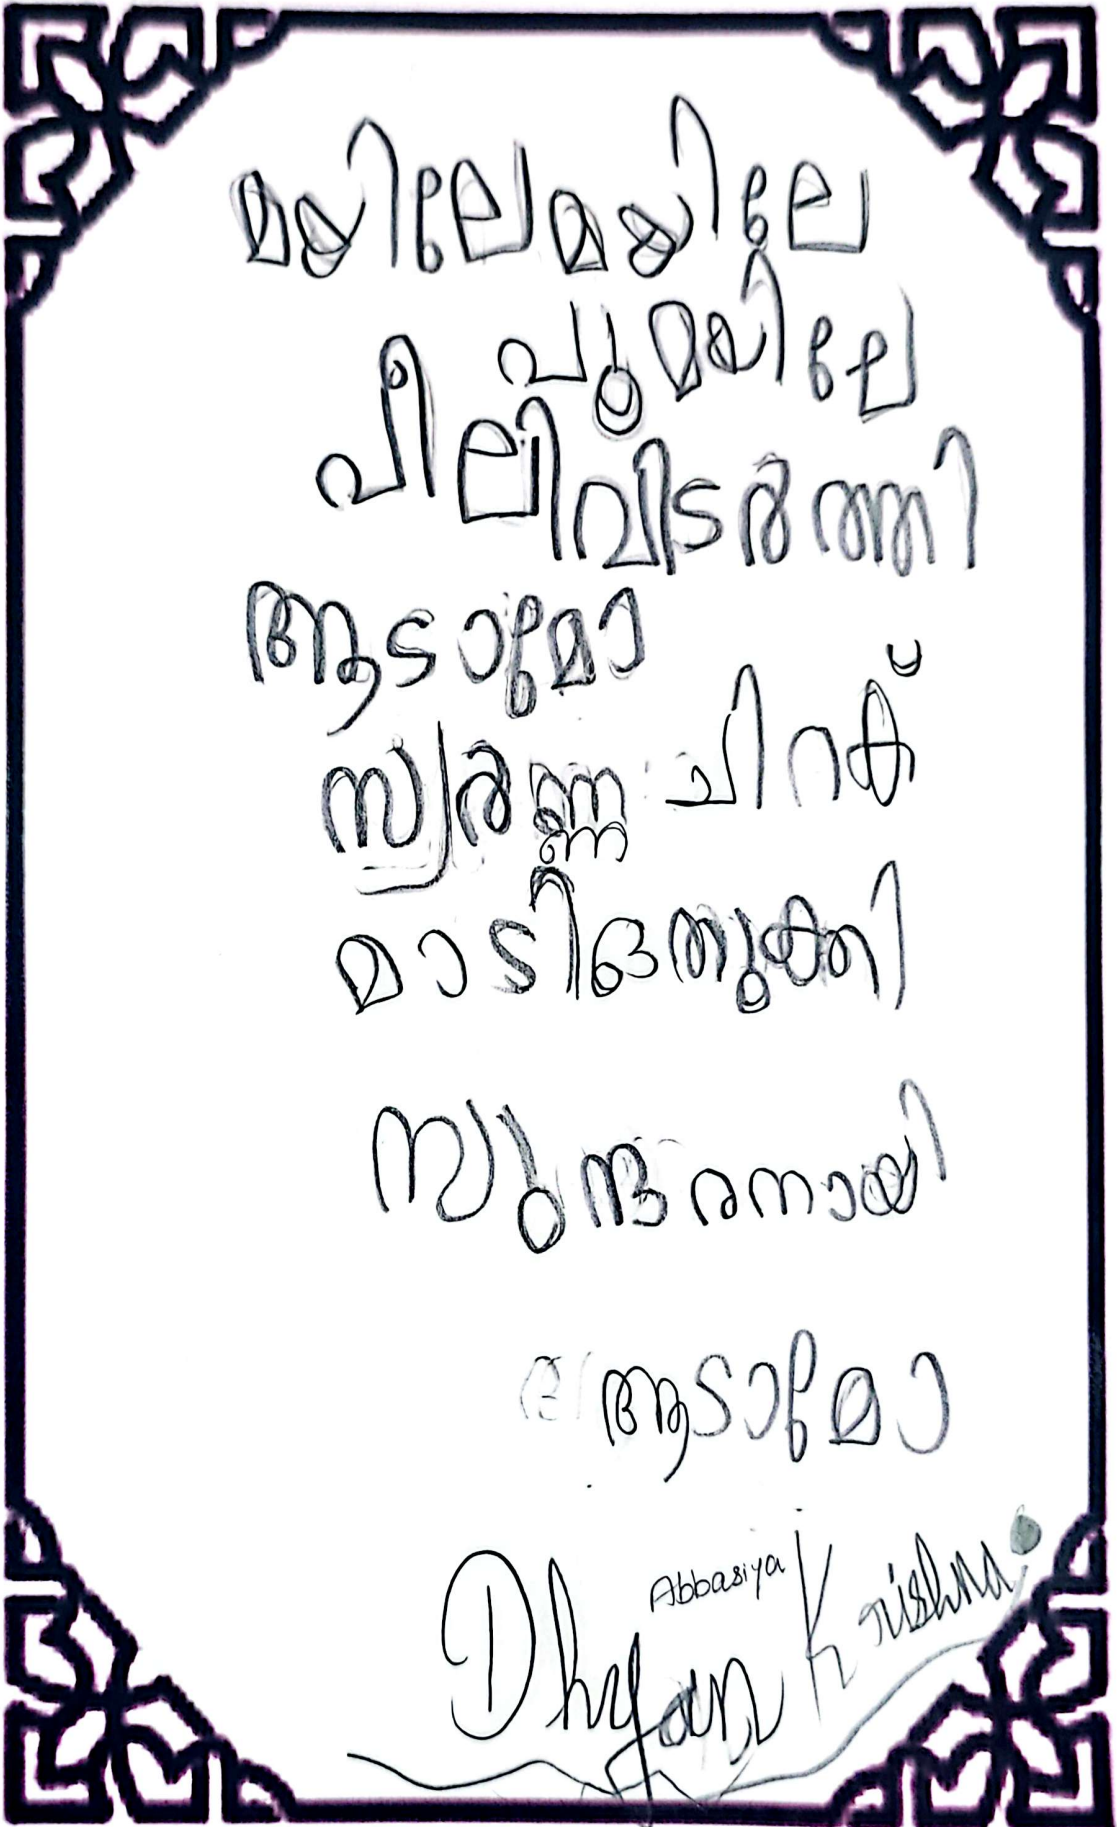 മയിലേമയിലേ
പൂമയിലേ
പീലിവിടർത്തി
ആടാമോ
സ്വർണ്ണ ചിറക്
മാടിഒതുക്കി
സുന്ദരനായി
ആടാമോ
Abbasiya
Dhyan Krishna